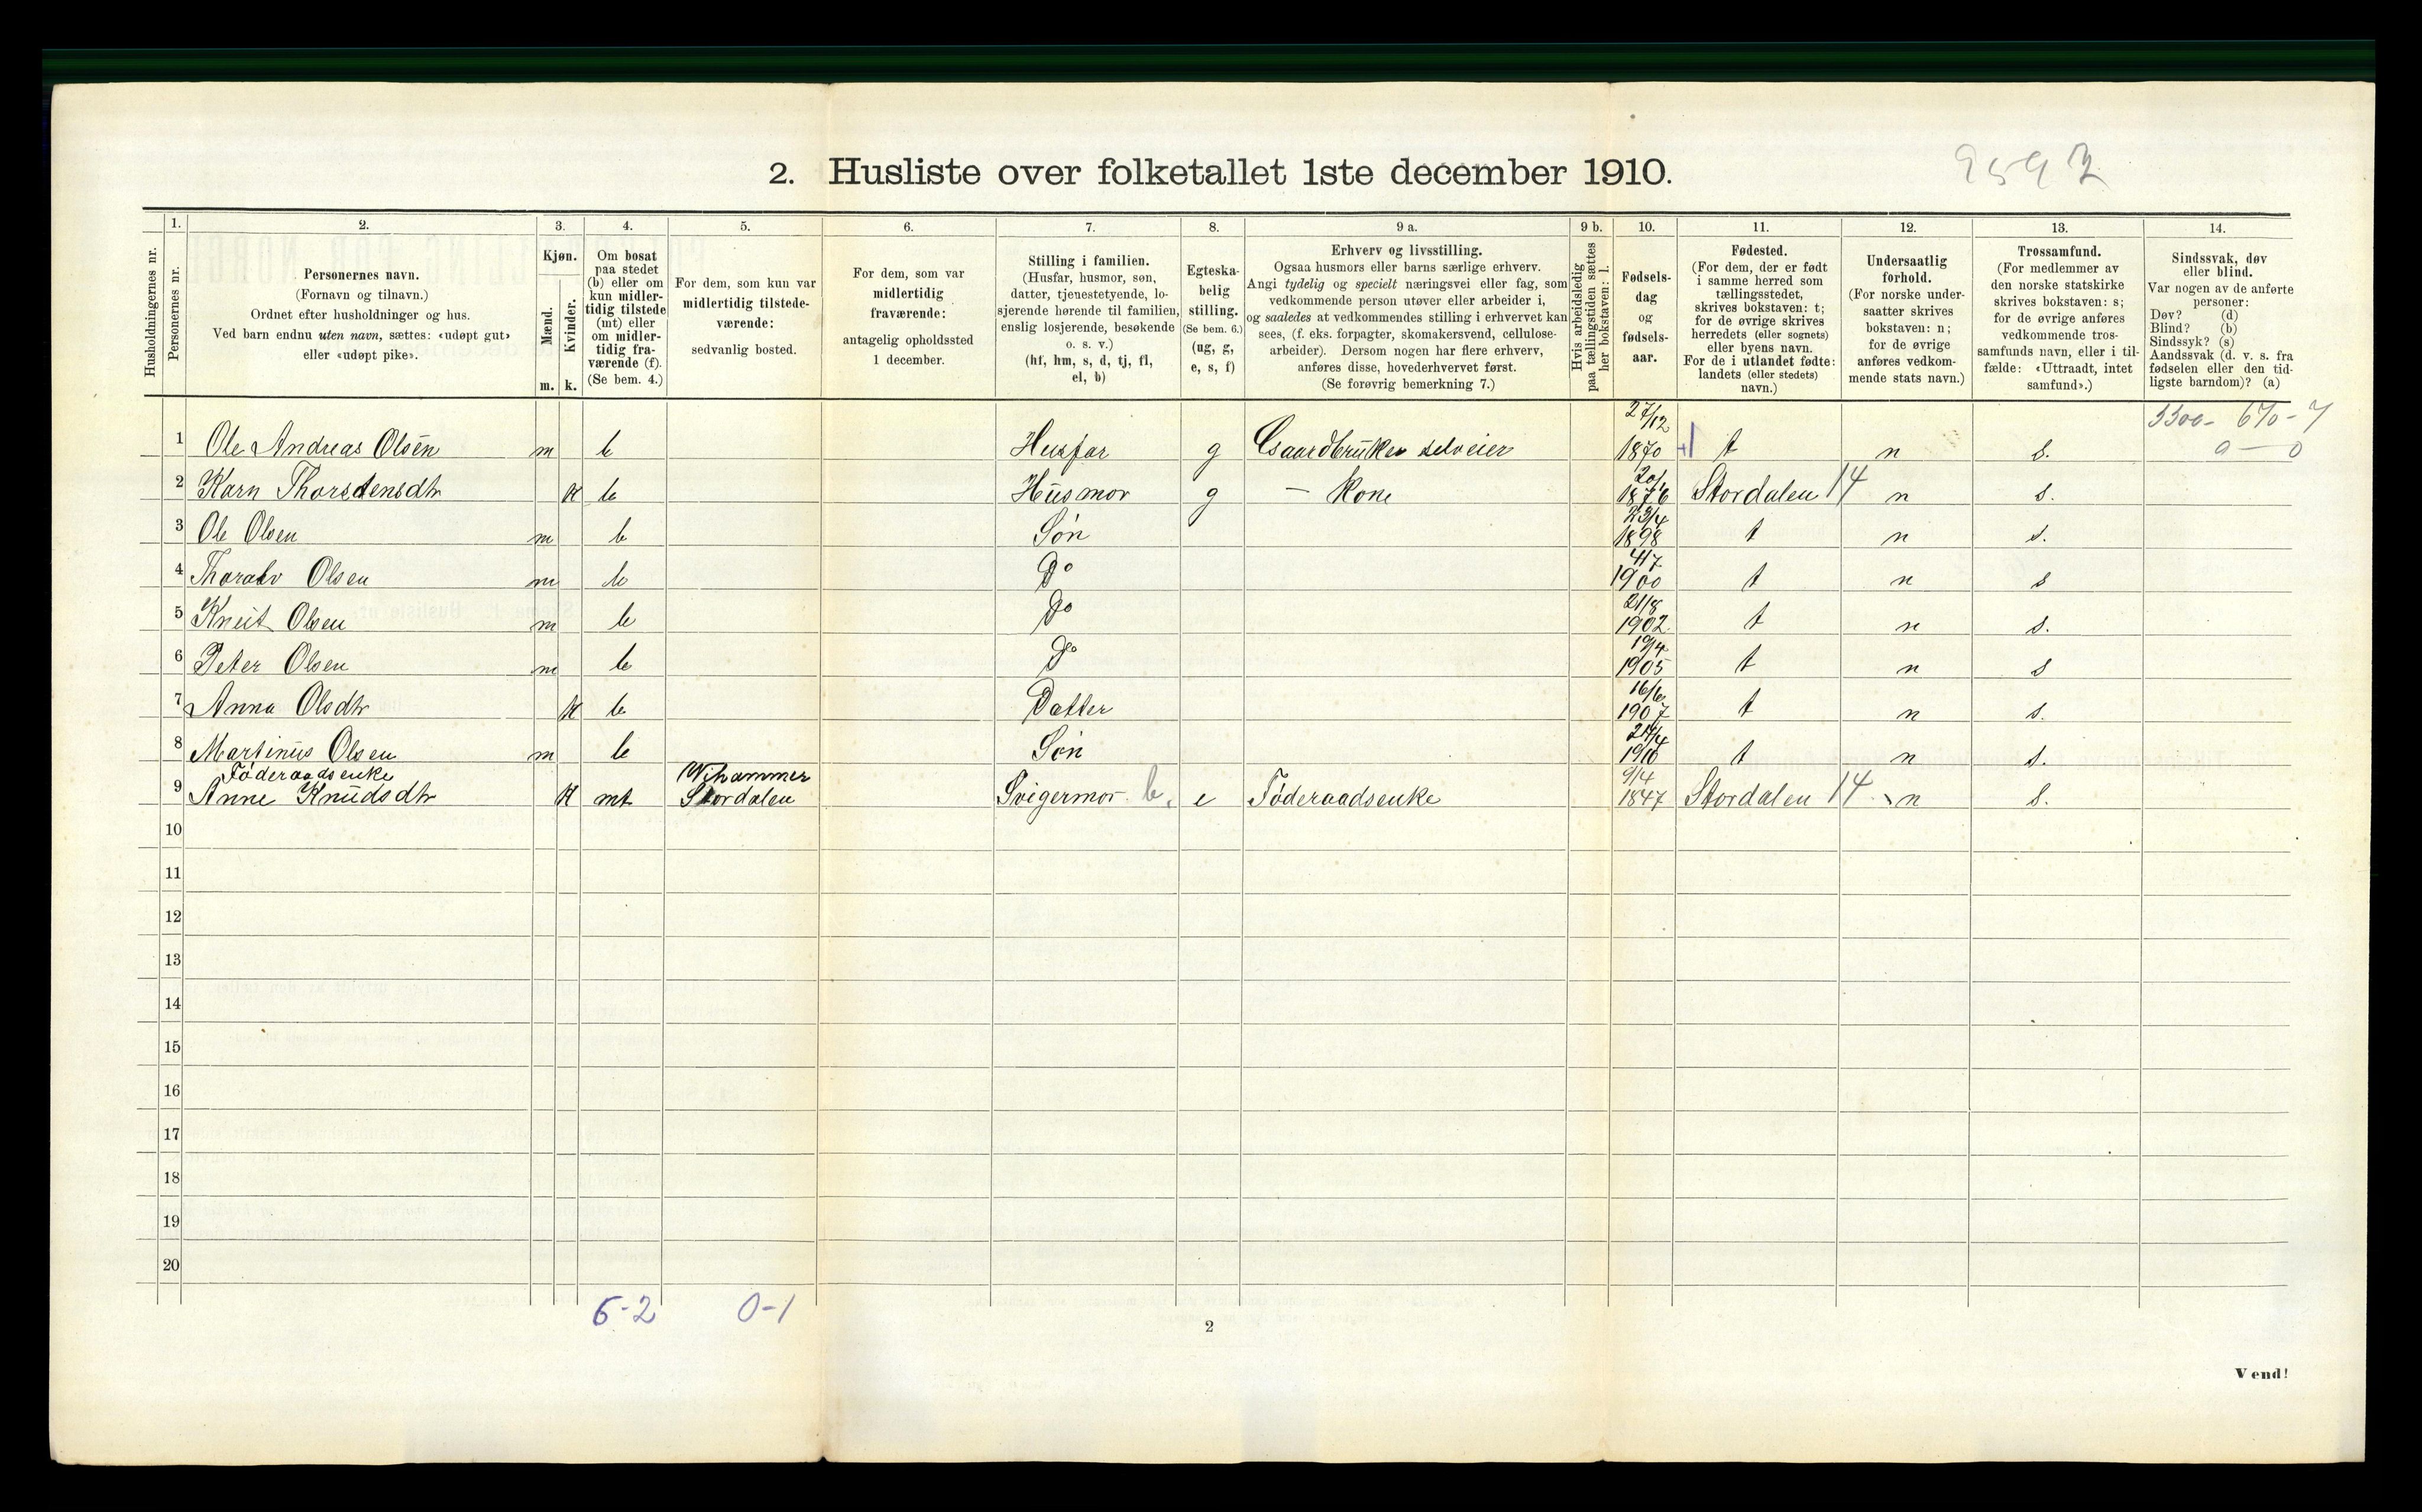 2. Husliste over folketallet 1ste december 1910.
9592
1. 2. 3. 4. 5. 6. 7. 8. 9 a. 9 b. 10. 11. 12. 13. 14.
Husholdningernes nr.
Personernes nr.
Personernes navn.
(Fornavn og tilnavn.)
Ordnet efter husholdninger og hus.
Ved barn endnu uten navn, sættes: «udøpt gut»
eller «udøpt pike».
Kjøn.
Mænd.
Kvinder.
m. k.
Om bosat
paa stedet
(b) eller om
kun midler-
tidig tilstede
(mt) eller
om midler-
tidig fra-
værende (f).
(Se bem. 4.)
For dem, som kun var
midlertidig tilstede-
værende:
sedvanlig bosted.
For dem, som var
midlertidig
fraværende:
antagelig opholdssted
1 december.
Stilling i familien.
(Husfar, husmor, søn,
datter, tjenestetyende, lo-
sjerende hørende til familien,
enslig losjerende, besøkende
o. s. v.)
(hf, hm, s, d, tj, fl,
el, b)
Egteska-
belig
stilling.
(Se bem. 6.)
(ug, g,
e, s, f)
Erhverv og livsstilling.
Ogsaa husmors eller barns særlige erhverv.
Angi tydelig og specielt næringsvei eller fag, som
vedkommende person utøver eller arbeider i,
og saaledes at vedkommendes stilling i erhvervet kan
sees, (f. eks. forpagter, skomakersvend, cellulose-
arbeider). Dersom nogen har flere erhverv,
anføres disse, hovederhvervet først.
(Se forøvrig bemerkning 7.)
Hvis arbeidsledig
paa tællingstiden sættes
her bokstaven: l.
Fødsels-
dag
og
fødsels-
aar.
Fødested.
(For dem, der er født
i samme herred som
tællingsstedet,
skrives bokstaven: t;
for de øvrige skrives
herredets (eller sognets)
eller byens navn.
For de i utlandet fødte:
landets (eller stedets)
navn.)
Undersaatlig
forhold.
(For norske under-
saatter skrives
bokstaven: n;
for de øvrige
anføres vedkom-
mende stats navn.)
Trossamfund.
(For medlemmer av
den norske statskirke
skrives bokstaven: s;
for de øvrige anføres
vedkommende tros-
samfunds navn, eller i til-
fælde: «Uttraadt, intet
samfund».)
Sindssvak, døv
eller blind.
Var nogen av de anførte
personer:
Døv? (d)
Blind? (b)
Sindssyk? (s)
Aandssvak (d. v. s. fra
fødselen eller den tid-
ligste barndom)? (a)
27/12
1 Ole Andreas Olsen m b Husfar g Gaardbruker selveier 1870 t n s.
0 — 0
20/1
2 Karn Thorstensdtr k b Husmor g — Kone 1876 Stordalen 14 n s.
23/4
3 Ole Olsen m b Søn 1898 t n s.
4/7
4 Thoralv Olsen m b Do 1900 t n s
21/8
5 Knut Olsen m b Do 1902 t n s.
19/4
6 Peter Olsen m b Do 1905 t n s
16/6
7 Anna Olsdtr k b Datter 1907 t n s.
8 Martinus Olsen m b Søn 1910 t n s.
Føderaadsenke Vihammer 9/4
9 Anne Knudsdtr k mt Stordalen Svigermor b. e Føderaadsenke 1847 Stordalen 14 n s.
10
11
12
13
14
15
16
17
18
19
20
6-2 0-1
2
Vend!